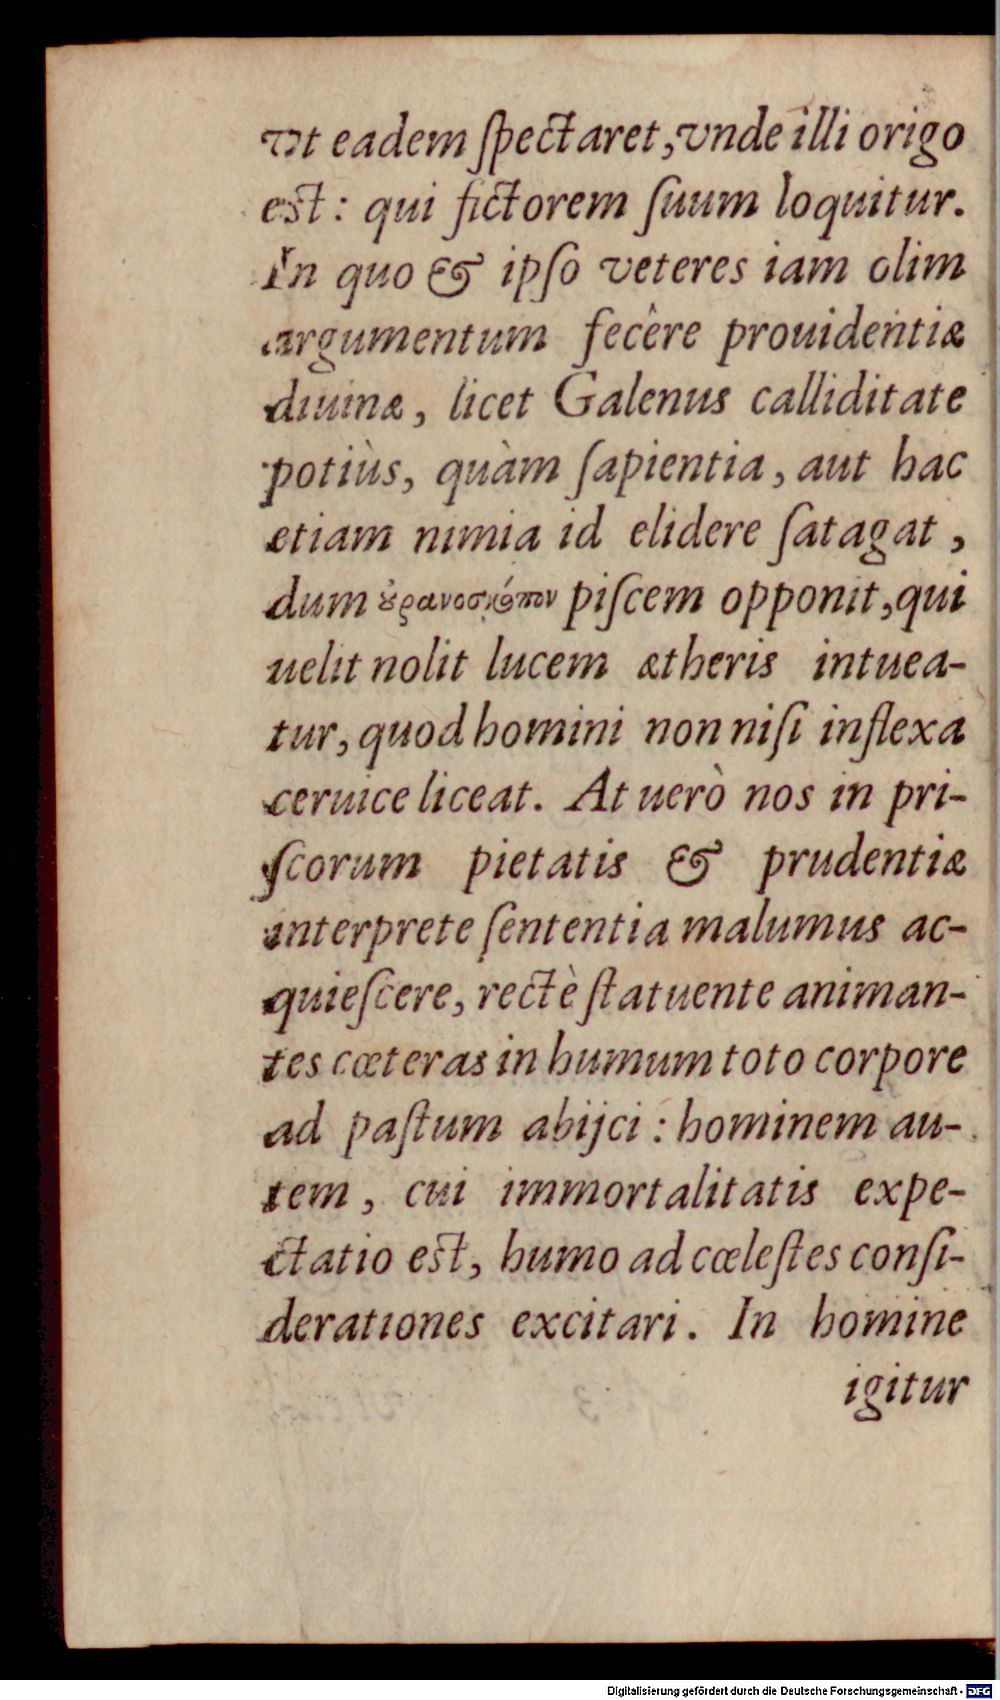 vt eadem ſpectaret, vnde illi origo
est: qui fictorem ſuum loquitur.
In quo & ipſo veteres iam olim
argumentum fecêre prouidentiæ
diuinæ, licet Galenus calliditate
potiùs, quàm ſapientia, aut hac
etiam nimia id elidere ſatagat,
dum ȣ̓ρανοσκόπον piſcem opponit, qui
uelit nolit lucem ætheris intuea-
tur, quod homini non niſi inflexa
ceruice liceat. At uerò nos in pri-
ſcorum pietatis & prudentiæ
interprete ſententia malumus ac-
quieſcere, rectè ſtatuente animan-
tes cœteras in humum toto corpore
ad paſtum abijci: hominem au-
tem, cui immortalitatis expe-
ctatio est, humo ad cœleſtes conſi-
derationes excitari. In homine
igitur
Digitalisierung gefördert durch die Deutsche Forschungsgemeinschaft - DFG